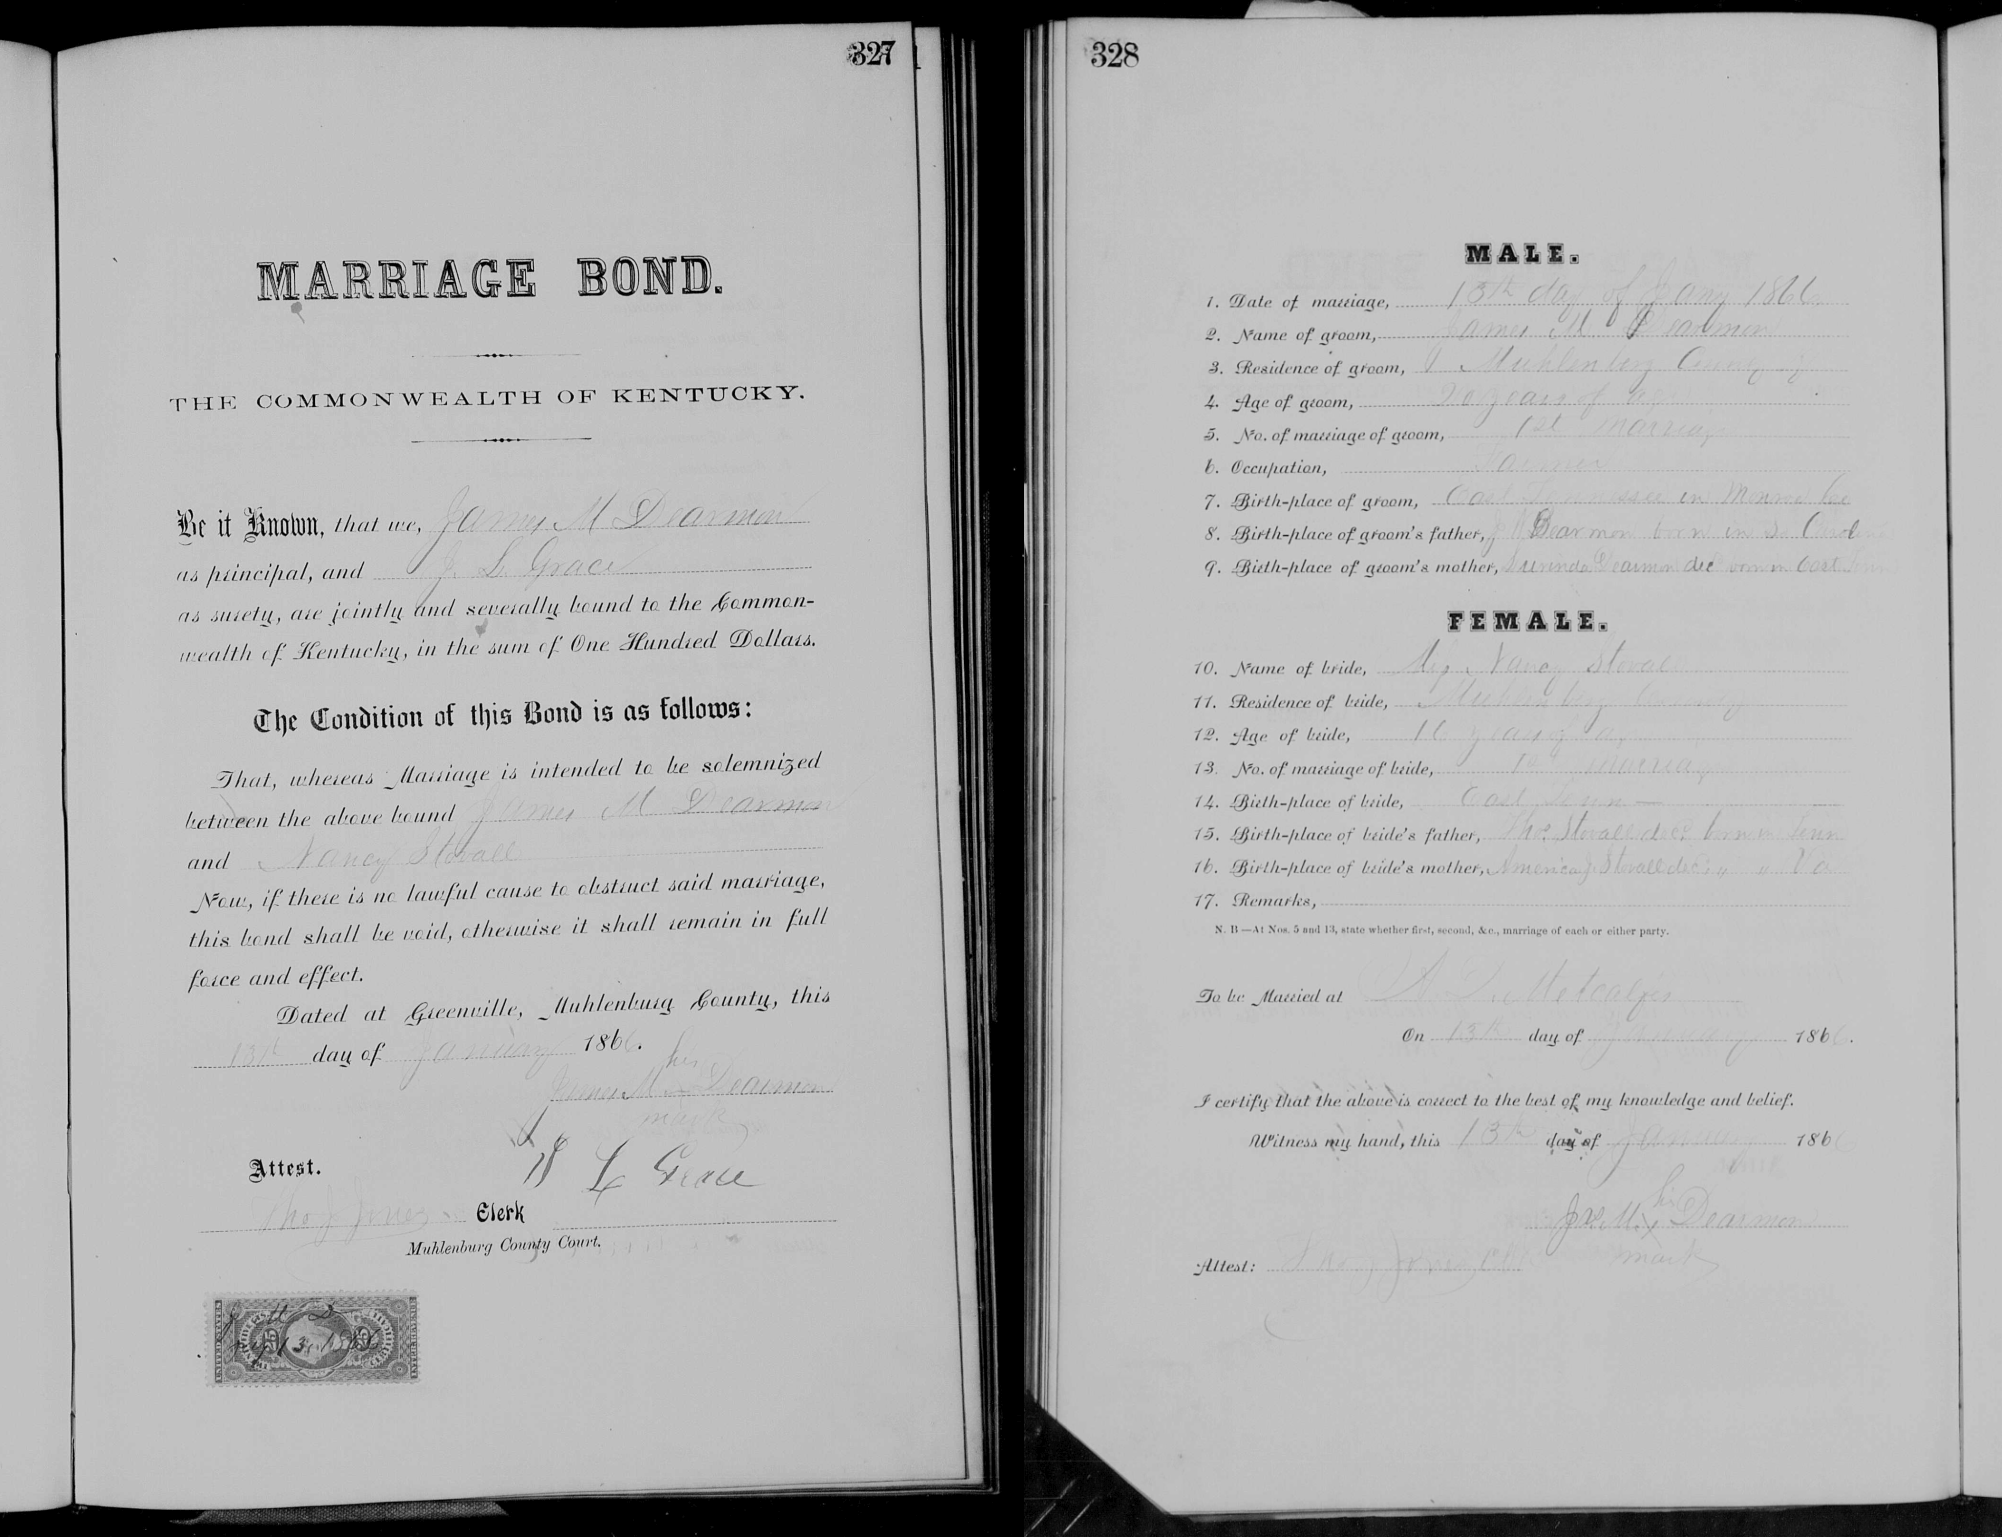 327
MARRIAGE BOND.
THE COMMONWEALTH OF KENTUCKY.
Be it Known, that we, James M Dearmon
as principal, and J. L. Grace
as surety, are jointly and severally bound to the Common-
wealth of Kentucky, in the sum of One Hundred Dollars.
The Condition of this Bond is as follows:
That, whereas Marriage is intended to be solemnized
between the above bound James M Dearmon
and Nancy Stovall
Now, if there is no lawful cause to obstruct said marriage,
this bond shall be void, otherwise it shall remain in full
force and effect.
Dated at Greenville, Muhlenburg County, this
13th day of January 1866.
his
James M x Dearmon
mark
J L Grace
Attest.
Tho J Jones Clerk
Muhlenburg County Court.
J M D
13 1866
328
MALE.
1. Date of marriage, 13th day of Jany 1866
2. Name of groom, James M Dearmon
3. Residence of groom, Muhlenburg County
4. Age of groom, 20 years of age
5. No. of marriage of groom, 1st marriage
6. Occupation, Farmer
7. Birth-place of groom, East Tennessee in Monroe Co
8. Birth-place of groom's father, Dearmon born in So Carolina
9. Birth-place of groom's mother, Dearmon dec born in East Tenn
FEMALE.
10. Name of bride, Nancy Stovall
11. Residence of bride, Muhlenburg County
12. Age of bride, 16 years of age
13. No. of marriage of bride, 1st marriage
14. Birth-place of bride, East Tenn —
15. Birth-place of bride's father, Thos Stovall decd born in Tenn
16. Birth-place of bride's mother, America J Stovall decd " " Va
17. Remarks,
N. B—At Nos. 5 and 13, state whether first, second, &c., marriage of each or either party.
To be Married at Metcalfes
On 13th day of January 1866.
I certify that the above is correct to the best of my knowledge and belief.
Witness my hand, this 13th day of January 1866
his
Jas M. x Dearmon
mark
Attest: Tho J Jones Clk